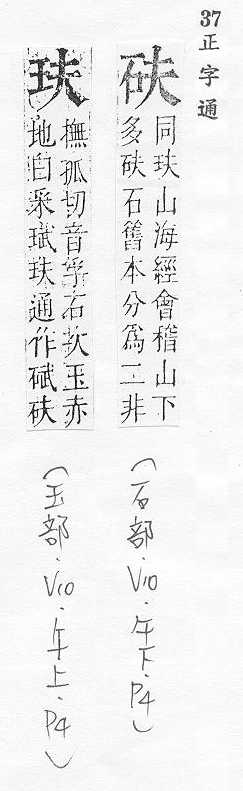 37正字通
砆
同玞山海經會稽山下
多砆石舊本分爲二非
(石部·V10·午下·P4)
玞
撫孤切音孚石次玉赤
地白采珷玞通作碔砆
(玉部·V10·午上·P4)